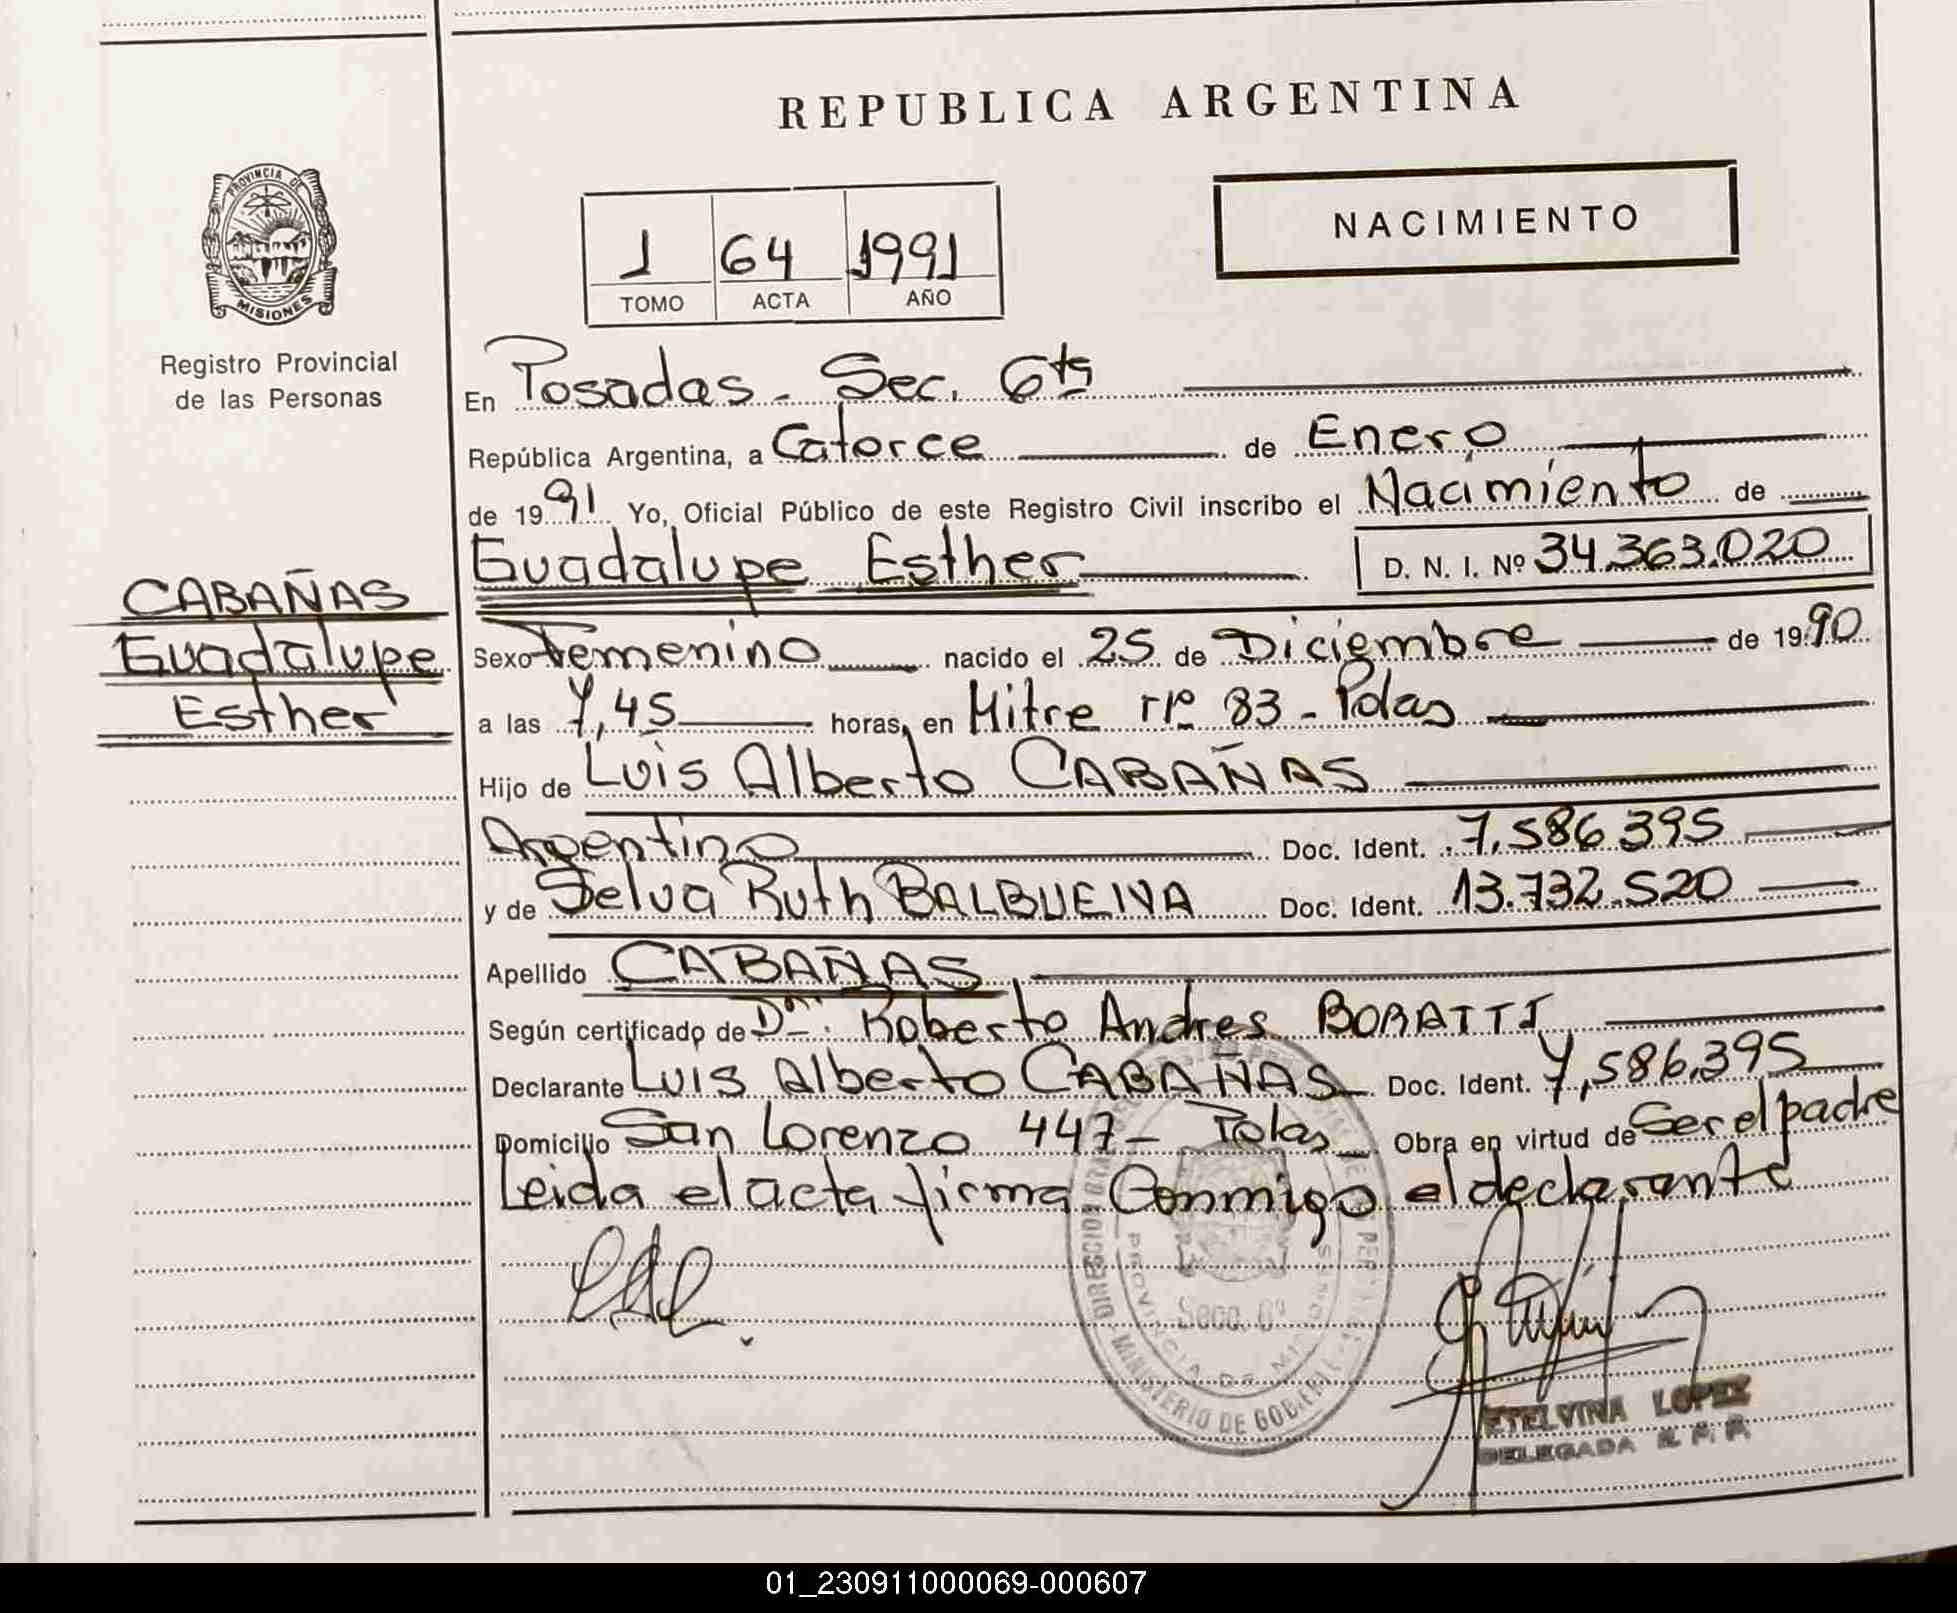 REPUBLICA ARGENTINA
PROVINCIA DE
MISIONES
Registro Provincial
de las Personas
NACIMIENTO
1 64 1991
TOMO ACTA AÑO
En Posadas - Sec. 6ta
República Argentina, a Catorce de Enero
de 1991 Yo, Oficial Público de este Registro Civil inscribo el Nacimiento de
Guadalupe Esther D. N. I. Nº 34.363.020
CABAÑAS
Guadalupe
Esther
Sexo Femenino nacido el 25 de Diciembre de 1990
a las 7,45 horas, en Mitre nº 83 - Pdas
Hijo de Luis Alberto CABAÑAS
Argentino Doc. Ident. 7.586.395
y de Selva Ruth BALBUENA Doc. Ident. 13.732.520
Apellido CABAÑAS
Según certificado de Dn. Roberto Andres BORATTI
Declarante Luis Alberto CABAÑAS Doc. Ident. 7.586.395
Domicilio San Lorenzo 447 - Pdas Obra en virtud de Ser el padre
Leida el acta firma Conmigo el declarante
MINISTERIO DE GOBIERNO
PROVINCIA DE MISIONES
Secc. 6ª
ETELVINA LOPEZ
DELEGADA R. P. P.
01_230911000069-000607